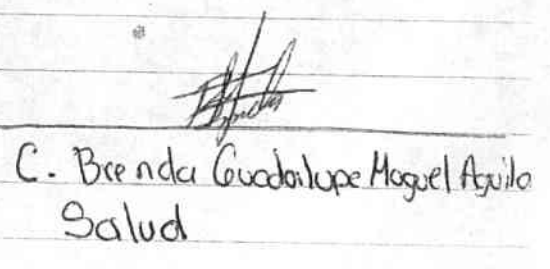 C. Brenda Guadailupe Moguel Aguila
Salud